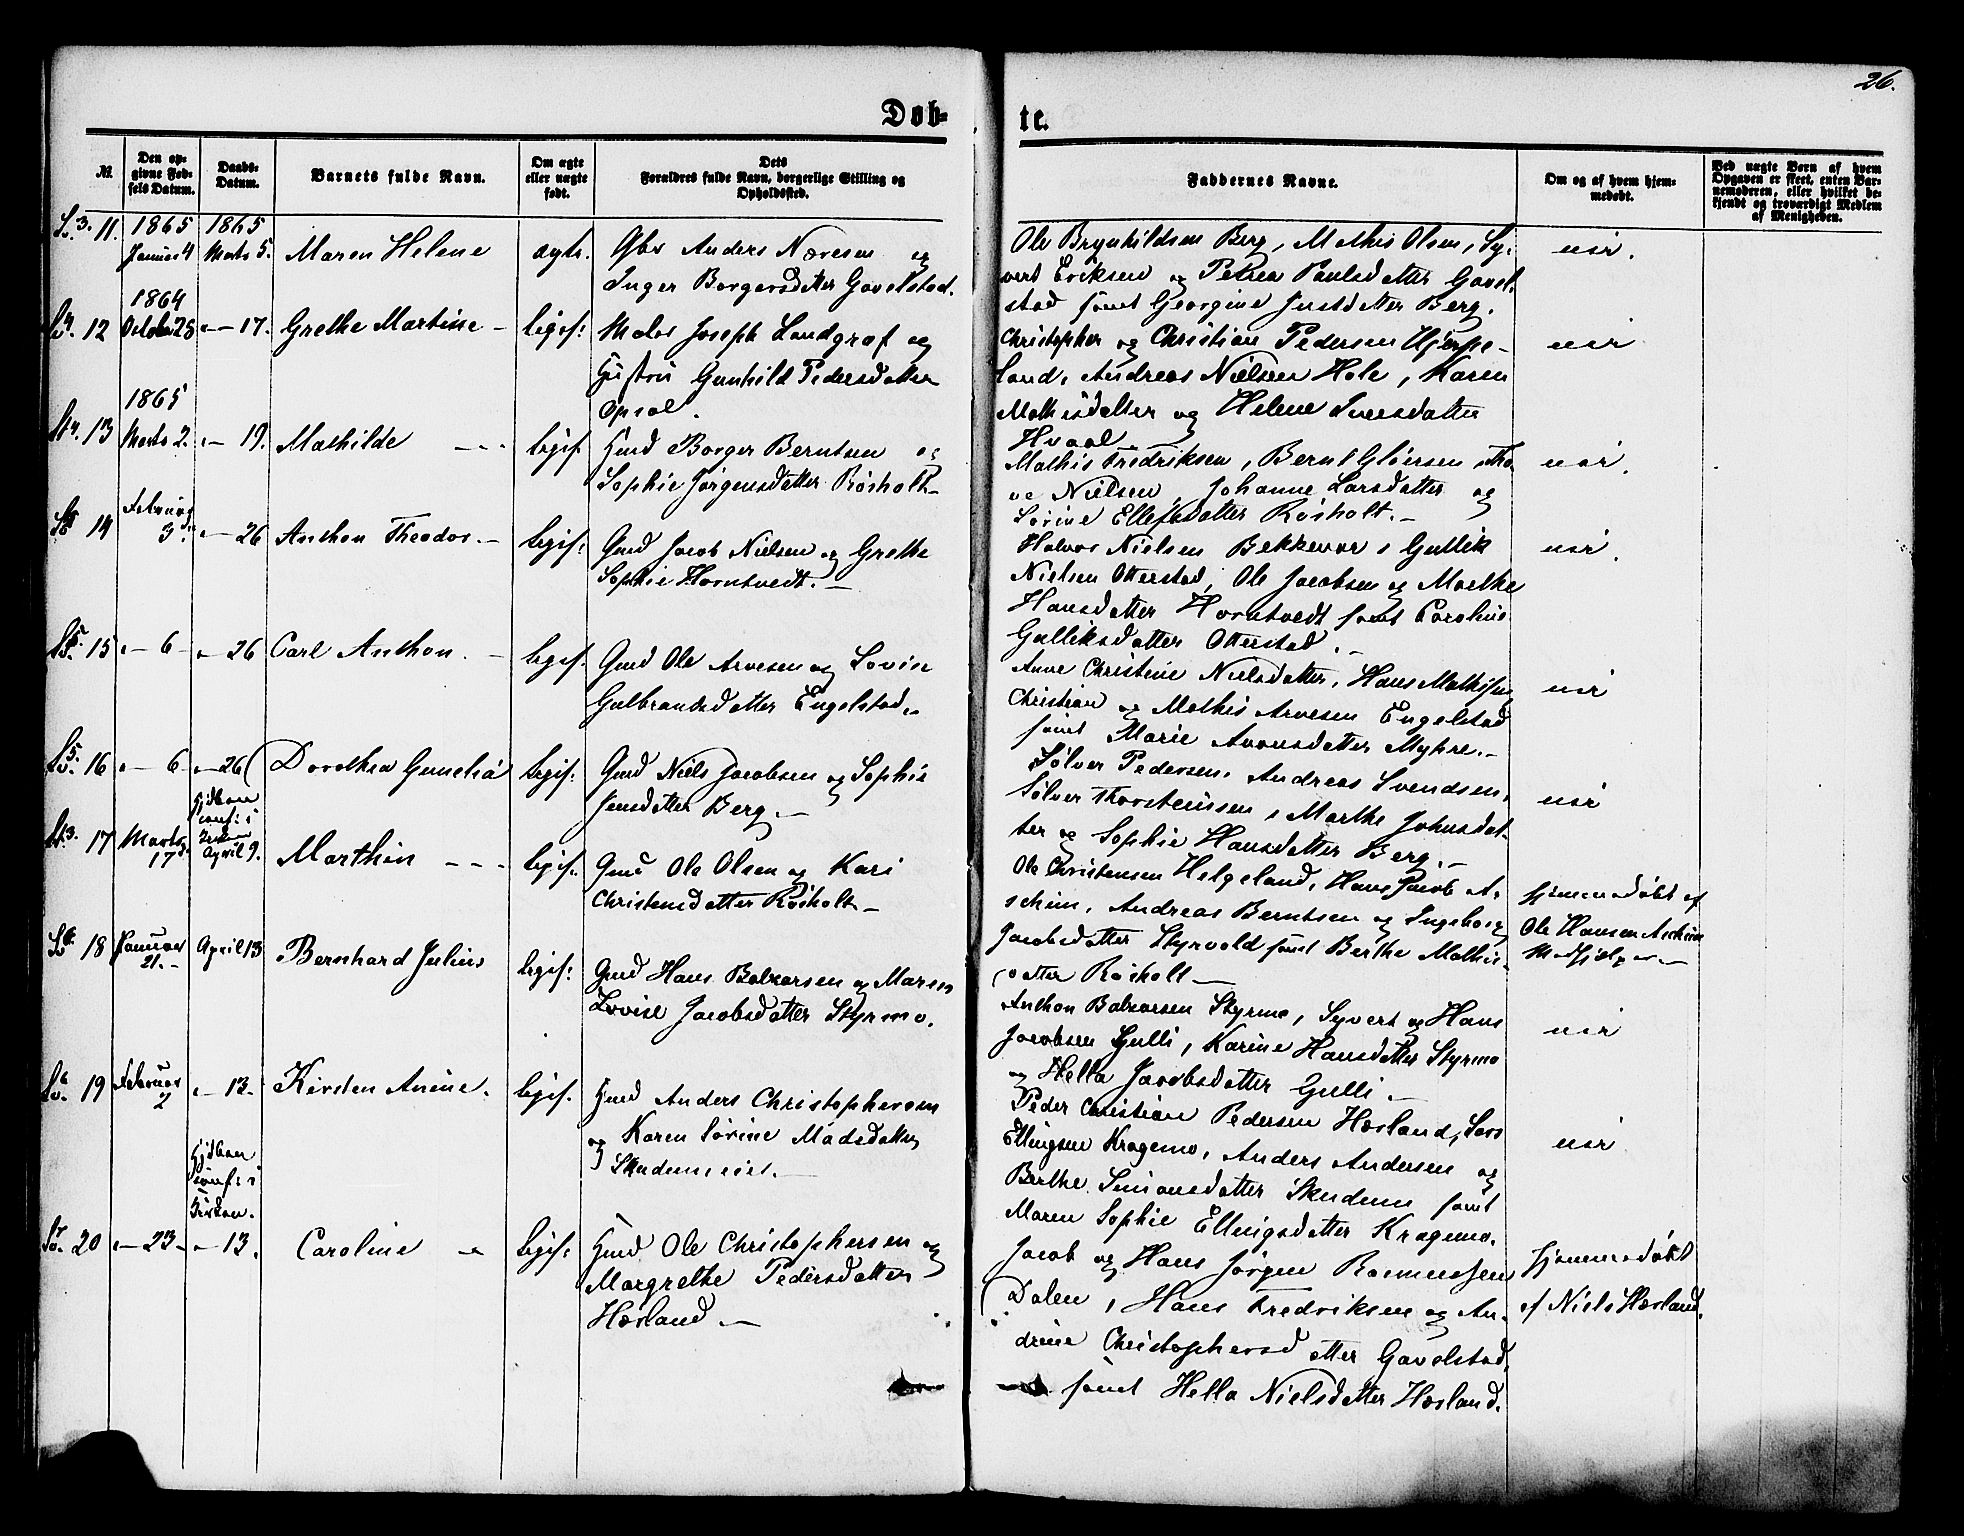 26.
Døb-
te.
№.
Den op-
givne Fød-
sels Datum.
Daabs-
Datum.
Barnets fulde Navn.
Om ægte
eller uægte
født.
Dets
Forældres fulde Navn, borgerlige Stilling og
Opholdssted.
Faddernes Navne.
Om og af hvem hjem-
medøbt.
Ved uægte Børn af hvem
Opgaven er skeet, enten Bar-
nemoderen, eller hvilket be-
kjendt og troværdigt Medlem
af Menigheden.
11.
1865
Januar 4
1865
Marts 5.
Maren Helene
ægte.
Gbr Anders Næresen og
Inger Borgersdatter Gavelstad.
Ole Brynhildsen Berg, Mathis Olsen, Sy-
vert Eriksen og Petrea Paulsdatter Gavel-
stad samt Georgine Justdatter Berg.
nei.
12
1864
October 25
" — 17.
Grethe Martine —
legif:
Maler Joseph Landgraf og
Hustru Gunhild Pedersdatter
Opsal.
Christopher og Christian Pedersen Hjerpe-
land, Andreas Nielsen Hole, Karen
Mathisdatter og Helene Iversdatter
Hvaal
nei
13
1865
Marts 2.
" — 19.
Mathilde
legif.
Gmd Borger Berntsen og
Sophie Jørgensdatter Røsholt —
Mathis Fredriksen, Bernt Gløersen, Tho-
re Nielsen, Johanne Larsdatter og
Sørine Ellefsdatter Røsholt. —
nei.
14
Februar
3.
" — 26
Anthon Theodor. —
legif:
Gmd Jacob Nielsen og Grethe
Sophie Horntvedt. —
Halvor Nielsen Bekkevar, Gullik
Nielsen Otterstad, Ole Jacobsen og Marthe
Hansdatter Horntvedt samt Caroline
Gulliksdatter Otterstad. —
nei.
15
" — 6 —
" — 26
Carl Anthon. —
legif.
Gmd Ole Arvesen og Lovise
Gulbrandsdatter Engelstad. —
Anne Christine Nielsdatter, Hans Mathisen,
Christian og Mathis Arvesen Engelstad
samt Marie Aronsdatter Myhre. —
nei
16
" — 6 —
" — 26
Dorothea Gunelia
legif:
Gmd Niels Jacobsen og Sophie
Jensdatter Berg. —
Sølver Pedersen, Andreas Svendsen,
Sølver Thorsteinssen, Marthe Johnsdat-
ter og Sophie Hansdatter Berg. —
nei
17
Marts
17
Hjdben
conf: i
Kirken
April 9.
Marthin — — —
legif:
Gmd Ole Olsen og Kari
Christensdatter Røsholt —
Ole Christensen Helgeland, Hans Jacob A-
schim, Andreas Berntsen og Ingeborg
Jacobsdatter Styrvold samt Berthe Mathis-
datter Røsholt —
Hjemmedøbt af
Ole Hansen Aschim
Medhjelper —
18
Januar
21. —
April 13
Bernhard Julius
legif:
Gmd Hans Balzarsen og Maren
Lovise Jacobsdatter Styrmo.
Anthon Balzarsen Styrmo, Syvert og Hans
Jacobsen Gulli, Karine Hansdatter Styrmo
og Hella Jacobsdatter Gulli. —
nei
19
Februar
2
" — 13.
Kirsten Anine.
legif.
Gmd Anders Christophersen
og Karen Sørine Madsdatter
Skudem eiet. —
Peder Christian Pedersen Hæsland, Lars
Ellingsen Kragemo, Anders Andersen og
Berthe Simonsdatter Skudem samt
Maren Sophie Ellingsdatter Kragemo.
nei
20
" — 23 —
Hjdben
conf: i
Kirken.
" — 13.
Caroline —
legif:
Gmd Ole Christophersen og
Margrethe Pedersdatter
Hæsland. —
Jacob og Hans Jørgen Rasmussen
Dalen, Hans Fredriksen og An-
drine Christophersdatter Gavelstad,
samt Hella Nielsdatter Hæsland.
Hjemmedøbt
af Niels Hæsland.